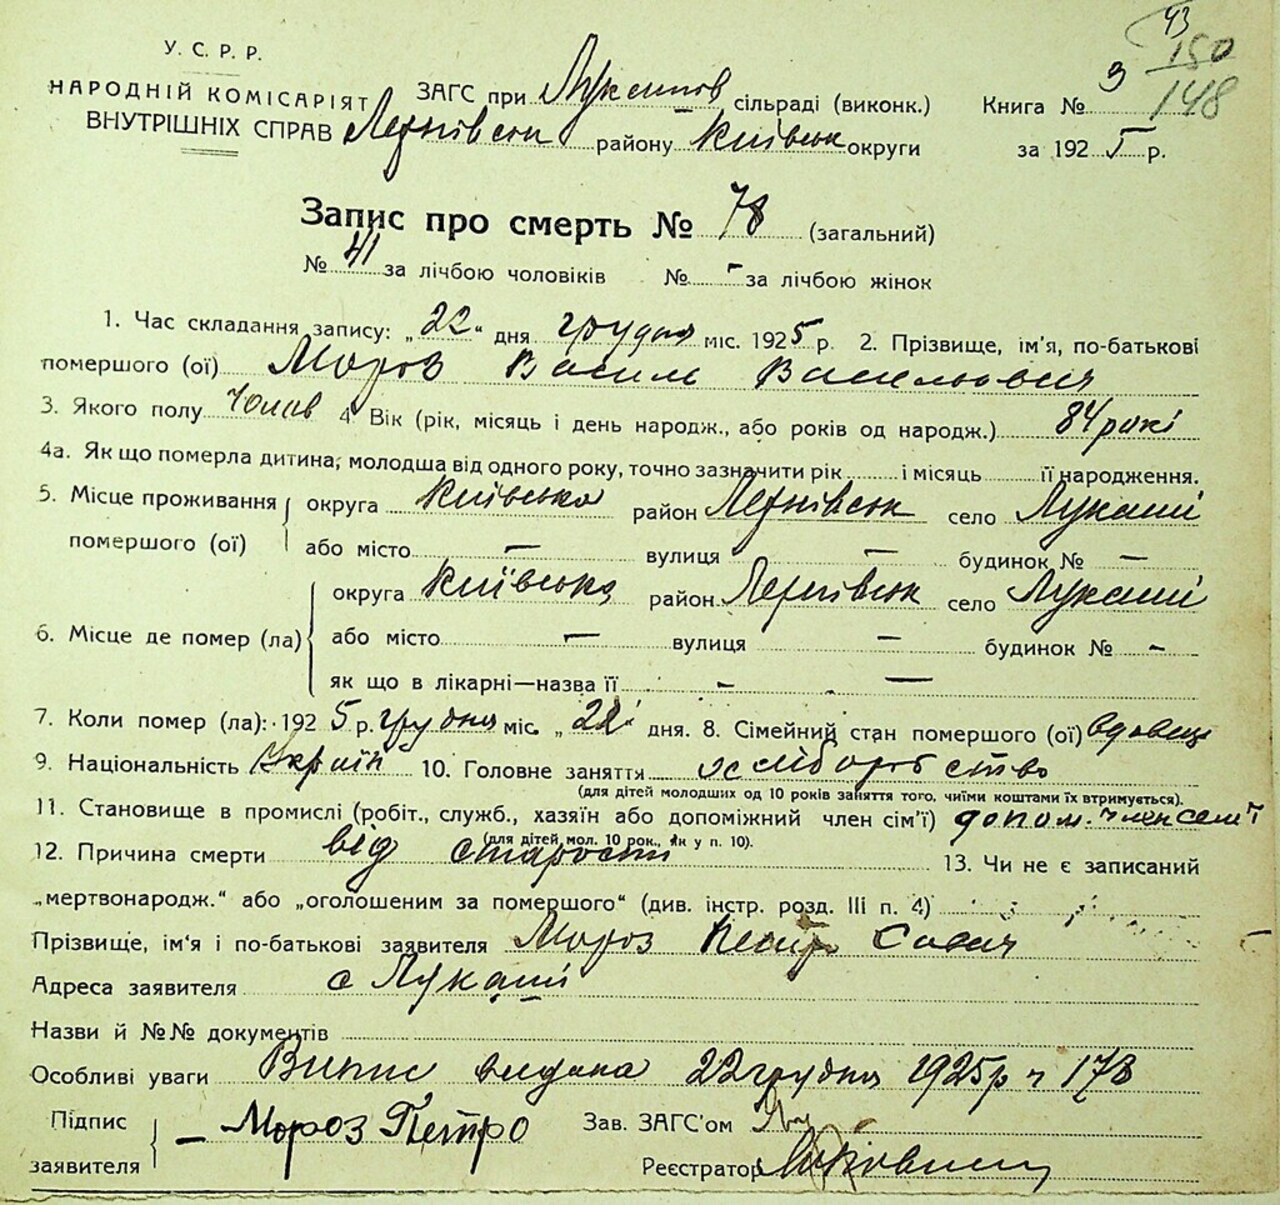 43
150
148
У. С. Р. Р.
НАРОДНІЙ КОМІСАРІЯТ
ВНУТРІШНІХ СПРАВ
ЗАГС при Лукашов сільраді (виконк.) Книга № 3
району Київськ округи за 1925 р.
Запис про смерть № 78 (загальний)
№ 41 за лічбою чоловіків № - за лічбою жінок
1. Час складання запису: „22“ дня грудня міс. 1925 р. 2. Прізвище, ім'я, по-батькові
помершого (ої) Мороз Василь Васильович
3. Якого полу Чолов 4 Вік (рік, місяць і день народж., або років од народж.) 84 рокі
4а. Як що померла дитина, молодша від одного року, точно зазначити рік і місяць її народження.
5. Місце проживання помершого (ої) округа Київська район село Лукаші
або місто — вулиця — будинок № —
6. Місце де помер (ла) округа Київська район село Лукаші
або місто — вулиця — будинок № -
як що в лікарні—назва її - —
7. Коли помер (ла): 1925 р. грудня міс. „22“ дня. 8. Сімейний стан помершого (ої) вдовець
9. Національність Україн 10. Головне заняття хліборобство
(для дітей молодших од 10 років заняття того, чиїми коштами їх втримується).
11. Становище в промислі (робіт., служб., хазяїн або допоміжний член сім'ї) допом. член семʼї
(для дітей мол. 10 рок., як у п. 10).
12. Причина смерти від старости 13. Чи не є записаний
„мертвонародж.“ або „оголошеним за помершого“ (див. інстр. розд. III п. 4)
Прізвище, ім'я і по-батькові заявителя Мороз Петро Савич
Адреса заявителя с Лукаші
Назви й №№ документів
Особливі уваги Випис видана 22 грудня 1925 р ч 178
Підпис заявителя — Мороз Петро Зав. ЗАГС'ом
Реєстратор